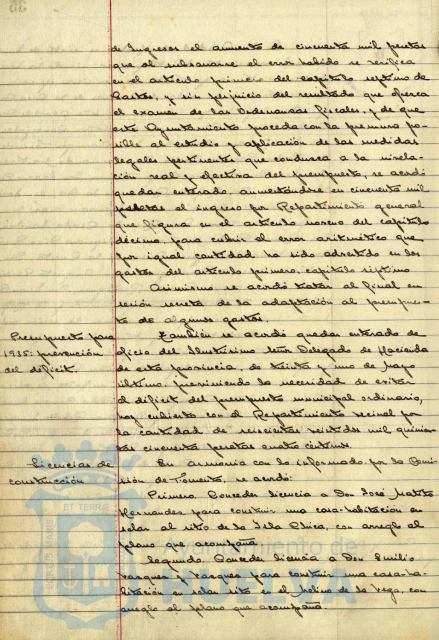 de Ingresos el aumento de cincuenta mil pesetas
que al subsanarse el error habido se verifica
en el artículo primero del capítulo septimo de
Gastos, y sin perjuicio del resultado que ofrezca
el examen de las Ordenanzas fiscales, y de que
este Ayuntamiento proceda con la premura po-
sible al estudio y aplicación de las medidas
legales pertinentes que conduzca a la nivela-
ción real y efectiva del presupuesto, se acordó
quedar enterado, aumentándose en cincuenta mil
pesetas el ingreso por Repartimiento general
que figura en el artículo noveno del capítulo
décimo, para cubrir el error aritmético que
por igual cantidad ha sido advertido en los
gastos del artículo primero, capítulo séptimo
Asimismo se acordó tratar al final en
sesión secreta de la adaptación al presupues-
to de algunos gastos.
Presupuesto para
1935: prevención
del déficit.
También se acordó quedar enterado de
oficio del Ilustrísimo Señor Delegado de Hacienda
de esta provincia, de treinta y uno de Mayo
último, previniendo la necesidad de evitar
el déficit del presupuesto municipal ordinario,
hoy cubierto con el Repartimiento vecinal por
la cantidad de seiscientas veintidos mil quinien-
tas cincuenta pesetas cuatro céntimos.
Licencias de
construcción
En armonía con lo informado por la Comi-
sión de Fomento, se acordó:
Primero. Conceder licencia a Don José
Hernandez para construir una casa-habitación en
solar al sitio de la Isla Chica, con arreglo al
plano que acompaña.
Segundo. Conceder licencia a Don Emilio
Vazquez y Vazquez para construir una casa-ha-
bitación en solar sito en el Molino de la Vega, con
arreglo al plano que acompaña.
ET TERRÆ
Ayuntamiento de
HUELVA